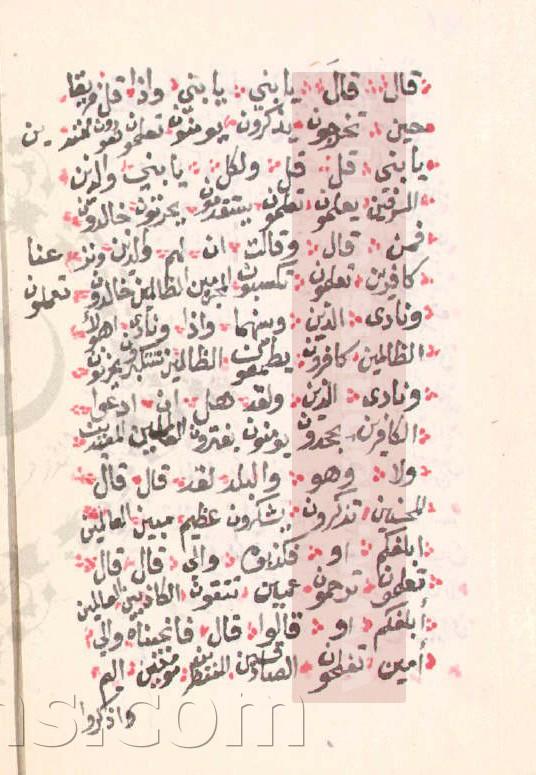 قال قال يا بني يا بني واذا قل فريقا
حين تخرجون يذكرون يؤمنون تعلمون مهتدين
يا بني قل قل ولكل يا بني والذين
المسرفين يعلمون تعلمون يستقدمون يحزنون خالدون
فمن قال وقالت ان لهم والذين ونزعنا
كافرين تعلمون تكسبون المجرمين الظالمين خالدون تعملون
ونادى الذين وبينهما واذا ونادى اهؤلاء
الظالمين كافرون يطمعون الظالمين تستكبرون تحزنون
ونادى الذين ولقد هل ان ادعوا
الكافرين يجحدون يؤمنون يفترون العالمين المعتدين
ولا وهو والبلد لقد قال قال
المحسنين تذكرون يشكرون عظيم مبين العالمين
ابلغكم او فكذبوه والى قال قال
تعلمون ترحمون عمين تتقون الكاذبين العالمين
أبلغكم او قالوا قال فانجيناه والى
أمين تفلحون الصادقين المنتظرين مؤمنين اليم
واذكروا
ns.com